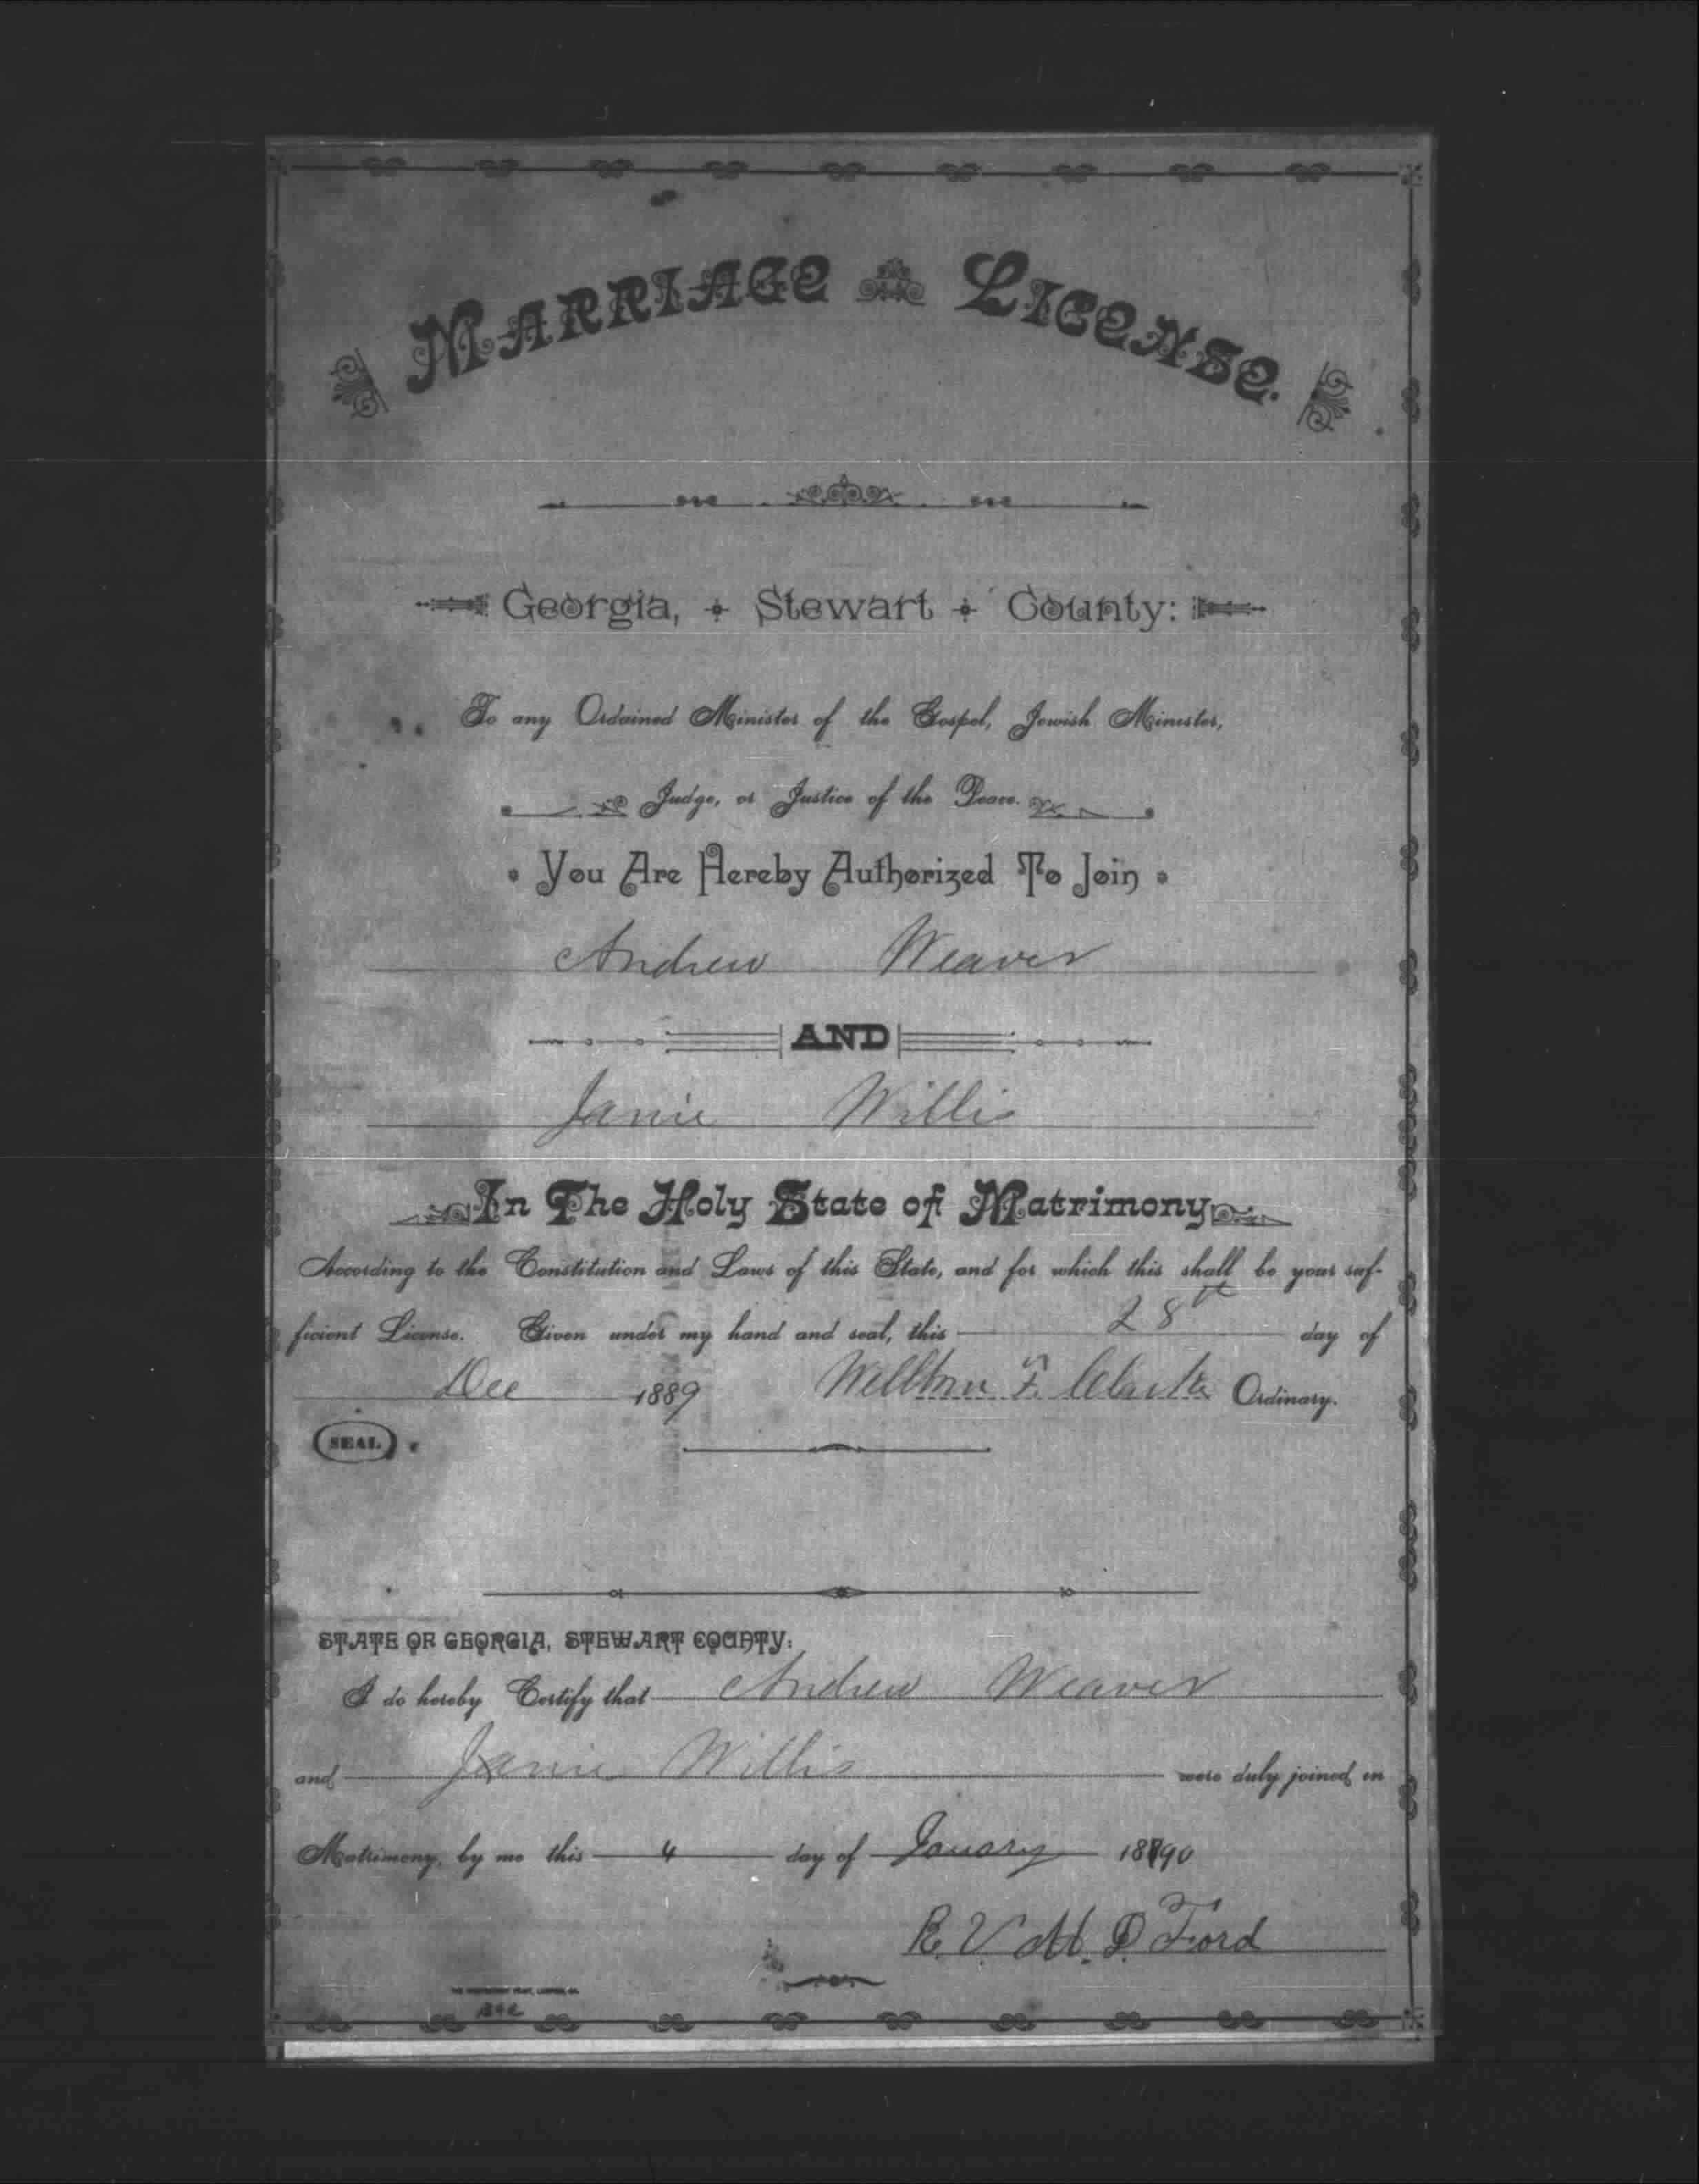 MARRIAGE LICENSE.
Georgia, Stewart County:
To any Ordained Minister of the Gospel, Jewish Minister,
Judge, or Justice of the Peace.
You Are Hereby Authorized To Join
Andrew Weaver
AND
Janie Willis
In The Holy State of Matrimony
According to the Constitution and Laws of this State, and for which this shall be your suf-
ficient License. Given under my hand and seal, this 28th day of
Dec 1889 F. Clarke Ordinary.
SEAL
STATE OF GEORGIA, STEWART COUNTY:
I do hereby Certify that Andrew Weaver
and Janie Willis were duly joined in
Matrimony, by me this 4 day of January 1890
R. V. M. D. Ford